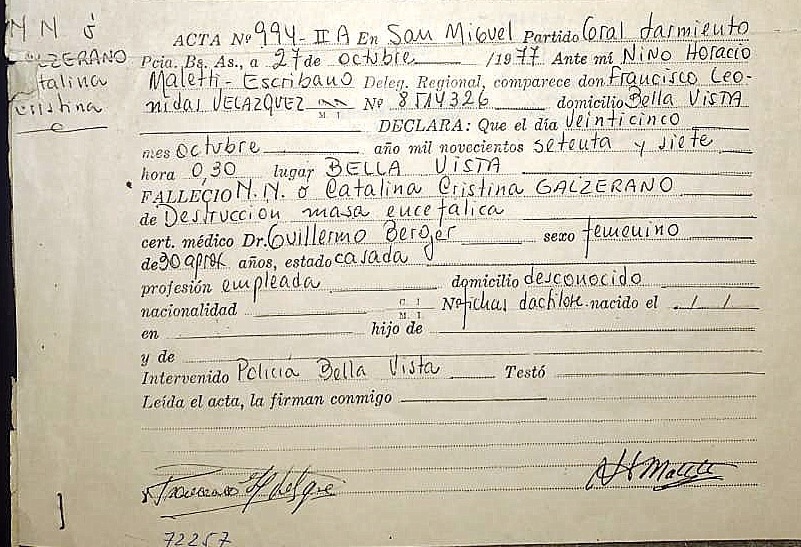 N N ó
GALZERANO
Catalina
Cristina
ACTA Nº 994-II A En San Miguel Partido Gral Sarmiento
Pcia. Bs. As., a 27 de octubre /1977 Ante mí NINO HORACIO
Maletti - Escribano Deleg. Regional, comparece don Francisco Leo-
nidas VELAZQUEZ M I Nº 8514326 domicilio Bella VISTA
DECLARA: Que el día Veinticinco
mes octubre año mil novecientos setenta y siete
hora 0,30 lugar BELLA VISTA
FALLECIO N.N. ó Catalina Cristina GALZERANO
de Destruccion masa encefalica
cert. médico Dr. Guillermo Berger sexo femenino
de 30 aprox años, estado casada
profesión empleada domicilio desconocido
nacionalidad C. I. M. I. Nº fichas dactilosc. nacido el / /
en hijo de
y de
Intervenido Policia Bella Vista Testó
Leída el acta, la firman conmigo
72257